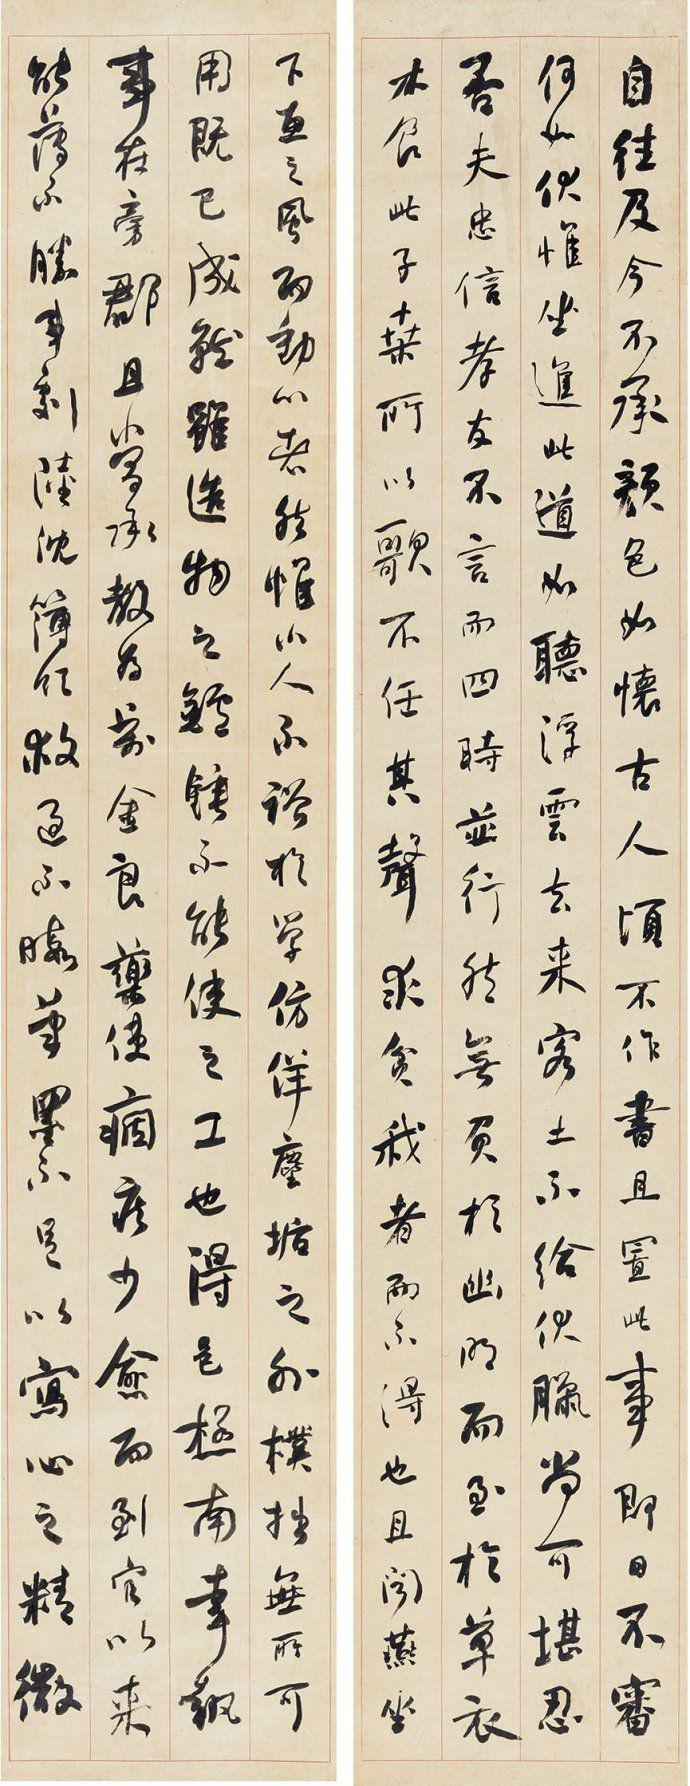 自往及今不承顏色如懷古人頃不作書且置此事即日不審
何如伏惟坐進此道如聽浮雲去來客土不給伏臘尚可堪忍
否夫忠信孝友不言而四時並行然無負於幽明而至於草衣
木食此子桒所以歌不任其聲求貧我者而不得也且聞燕坐
下之風而動心者然惟小人不裕於學仿佯塵垢之外樸拙無所可
用既已成就雖造物之鑪錘不能使之工也得邑極南幸執
事在旁郡且當承教為萬金良藥使痼疾少愈而到官以來
能薄不勝事劇陸沈簿領救過不暇筆墨不足以寫心之精微